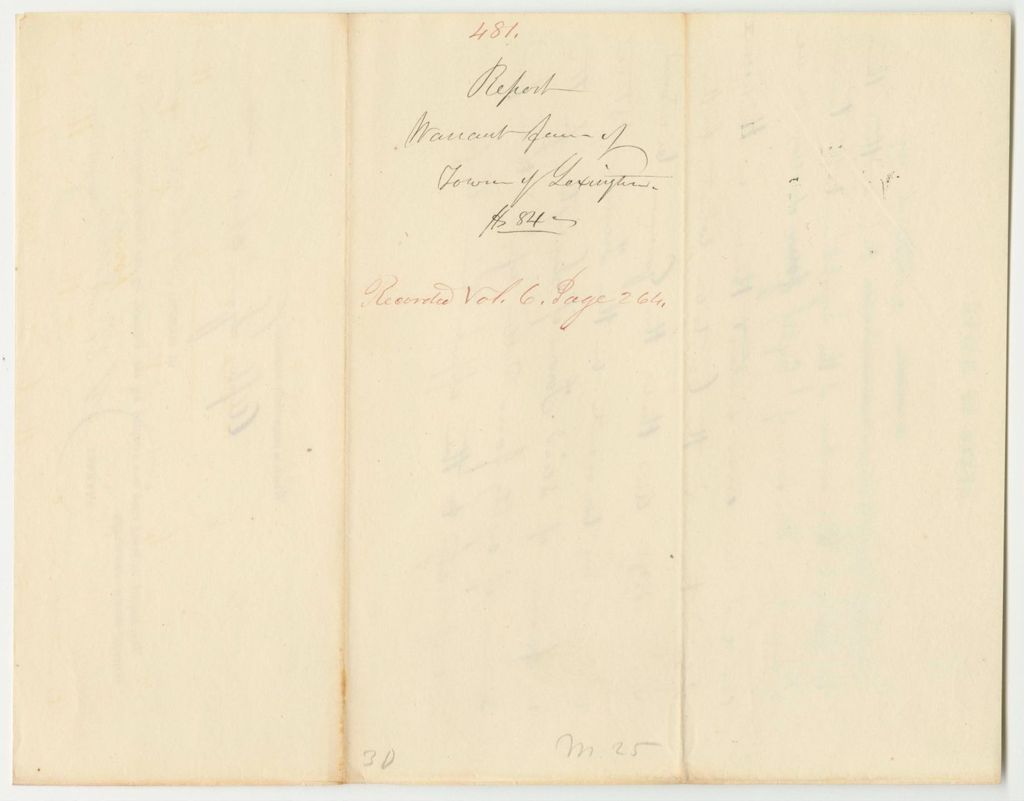 481.
Report
Warrant favr of
Town of Lexington.
$84
Recorded Vol. 6. Page 264.
30 M. 25